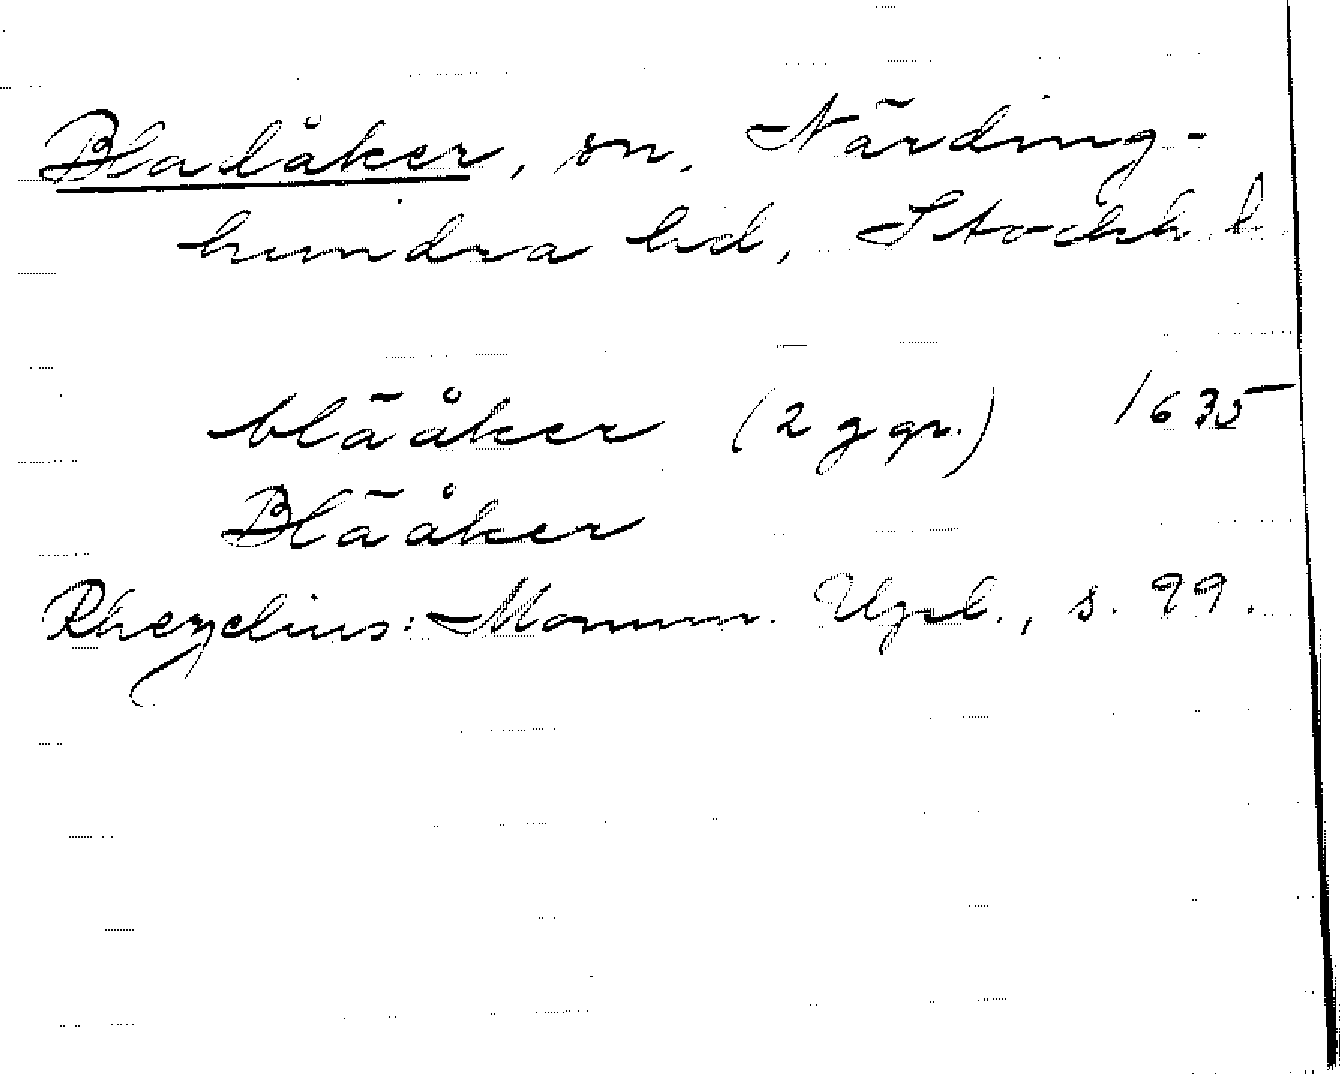 Bladåker, sn, Närding-
hundra hd, Stockh l
blääker (2 ggr.) 1635
Blääker
Rhezelius: Monum. Upl., s. 99.